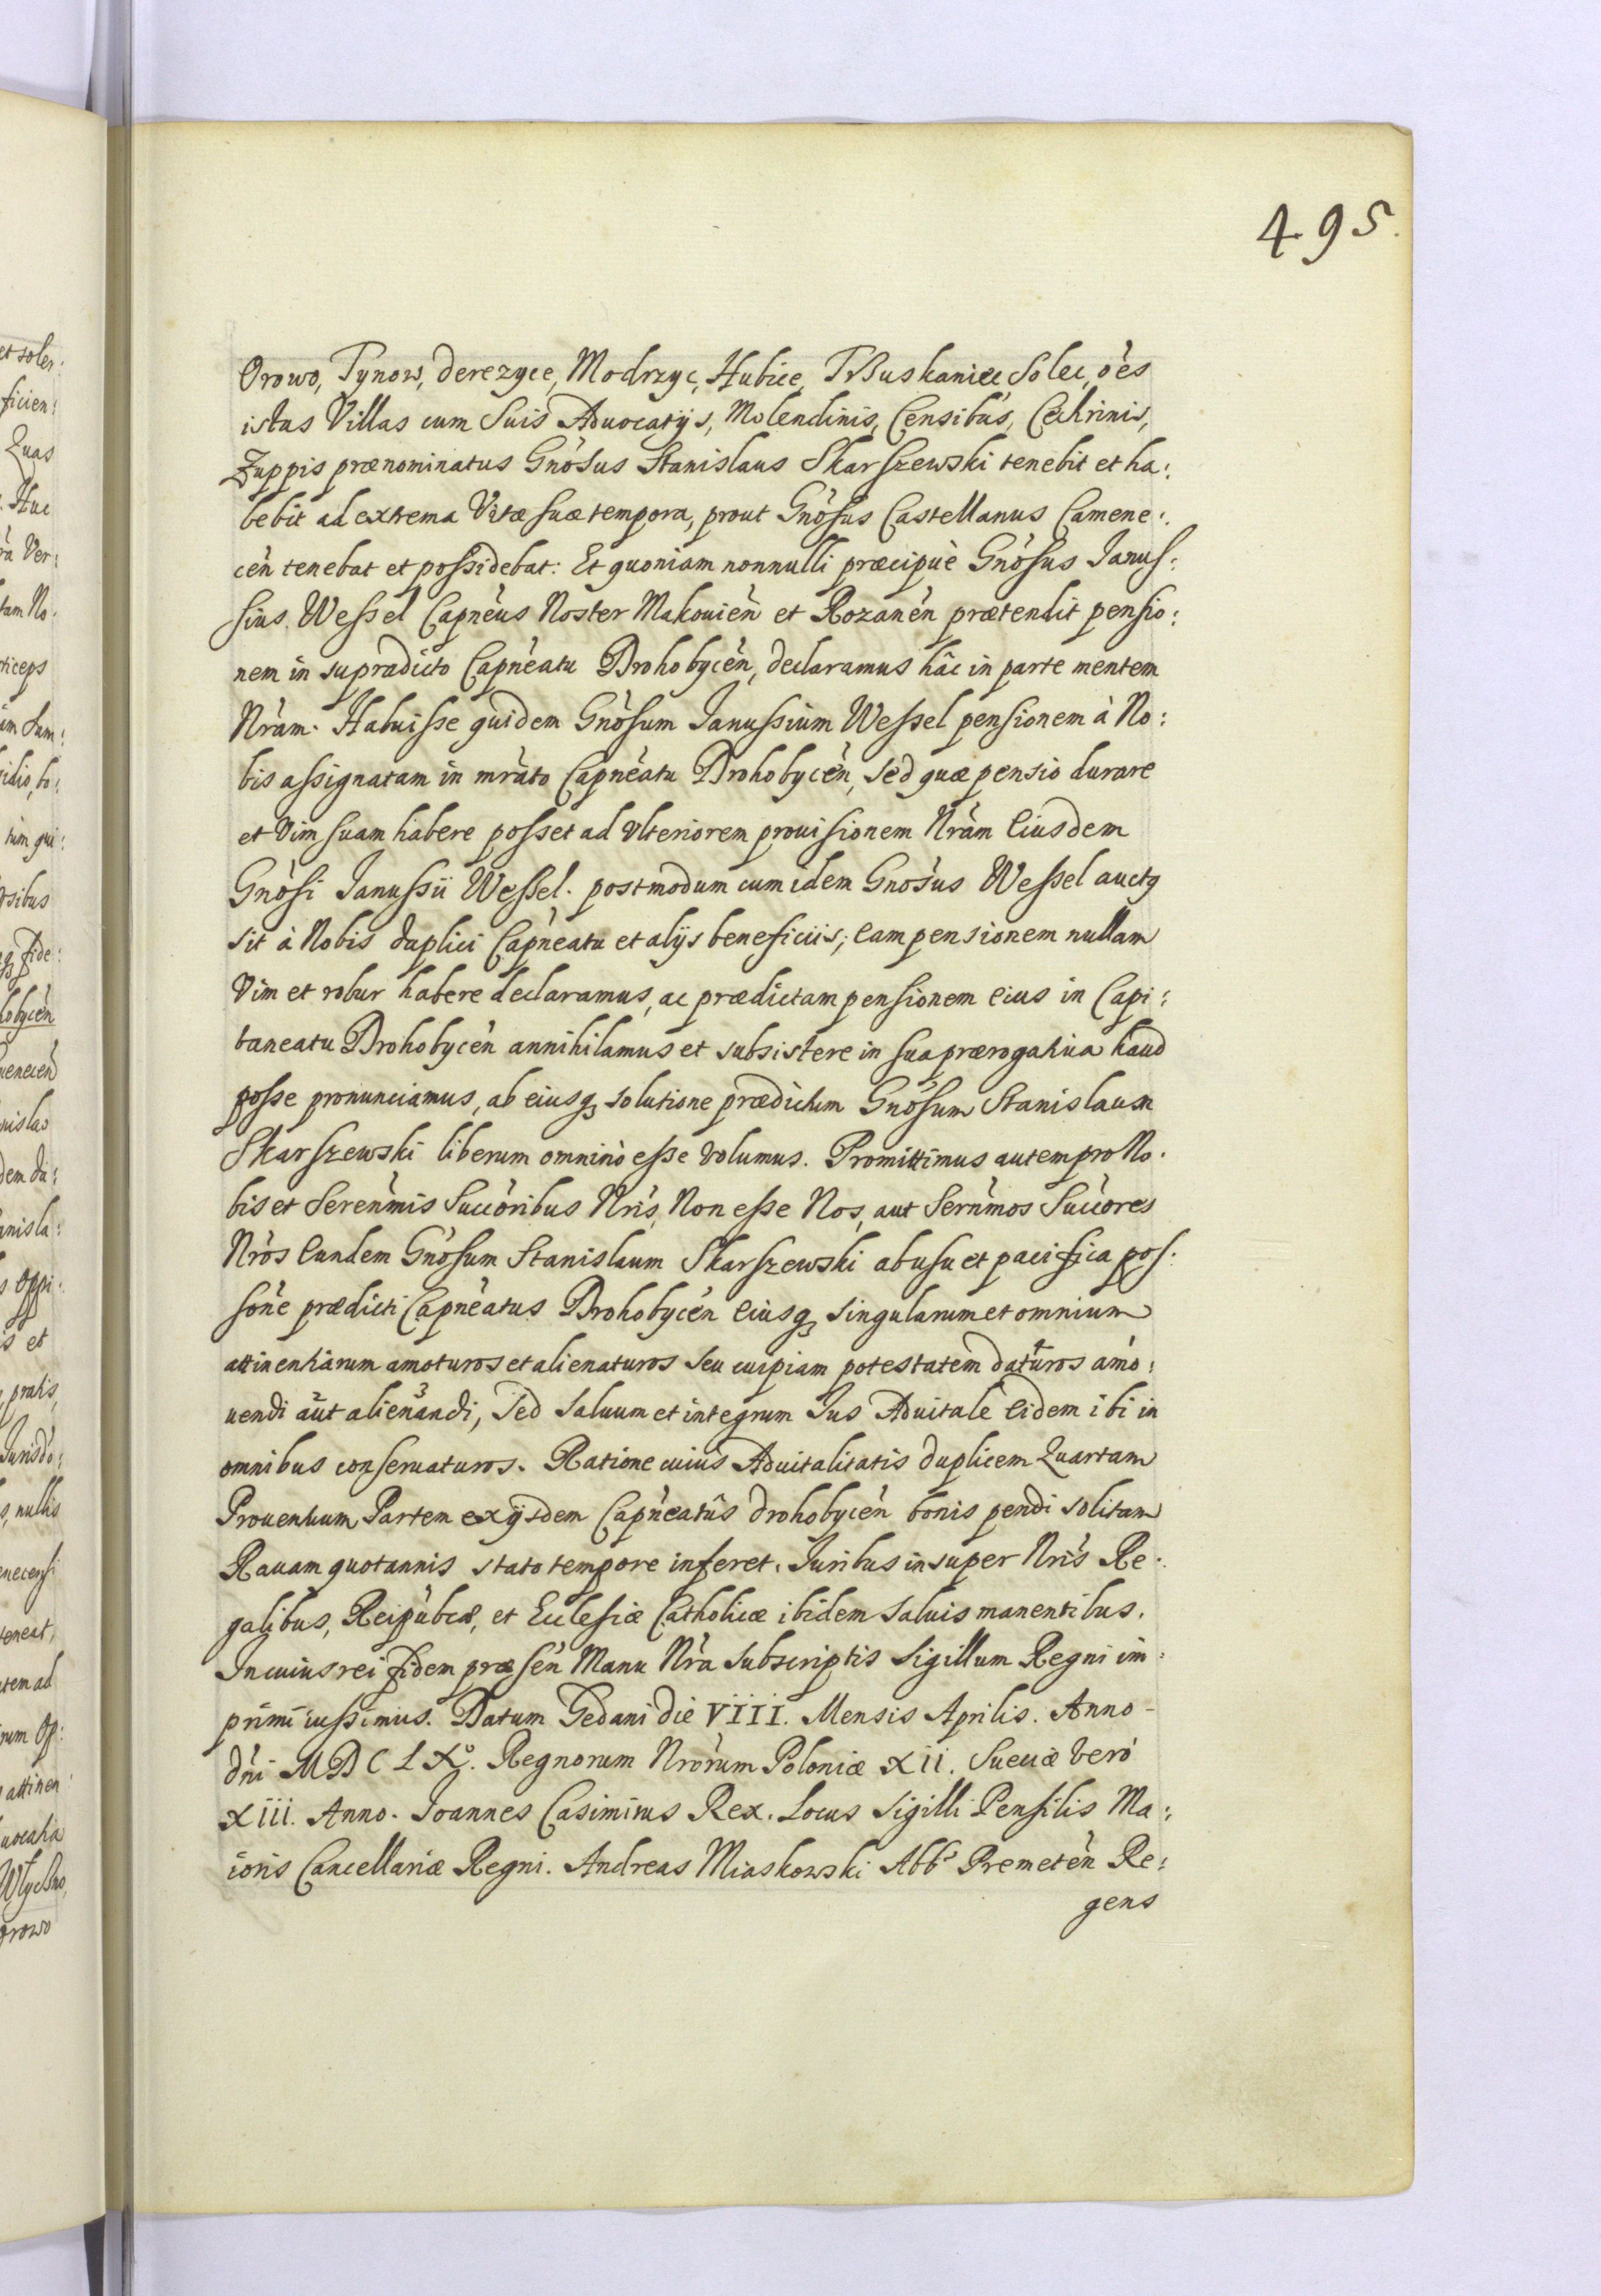 495.
Orowo, Tynow, Derezyce, Modrzyc, Hubice, Truskaniec Solec, oès
istas Villas cum Suis Aduocatijs, Molendinis, Censibus,
Zuppis prænominatus Gnòsus Stanislaus Skarszewski tenebit et ha:
bebit ad extrema Vitæ suæ tempora, prout Gnòsus Castellanus Camene:
cèn tenebat et possidebat: Et quoniam nonnulli præcipuè Gnòsus Janus:
sius Wessel Capnèus Noster Makouièn et Rozanèn prætendit pensio:
nem in supradicto Capnèatu Drohobycèn, declaramus hâc in parte mentem
Nràm. Habuisse quidem Gnòsum Janussium Wessel pensionem à No:
bis assignatam in mràto Capnèatu Drohobycèn, sed quæ pensio durare
et Vim suam habere posset ad Vlteriorem prouisionem Nràm Eiusdem
Gnòsi Janussii Wessel. postmodum cum idem Gnòsus Wessel auctq
sit à Nobis duplici Capnèatu et alijs beneficiis; Eam pensionem nullam
Vim et robur habere declaramus, ac prædictam pensionem eius in Capi:
taneatu Drohobycèn annihilamus et subsistere in sua prærogatiua haud
posse pronunciamus, ab eiusq; solutione prædictum Gnòsum Stanislaum
Skarszewski liberum omninò esse volumus. Promittimus autem pro No.
bis et Serenmis Succòribus Nrìs, Non esse Nos, aut Sernmos Succòres
Nròs Eundem Gnòsum Stanislaum Skarszewski ab usu et pacifica pos:
sonè prædicti Capnèatus Drohobycèn Eiusq; singularum et omnium
attinentiarum amoturos et alienaturos seu cuipiam potestatem daturos amo:
uendi aut alienandi, sed saluum et integrum Jus Aduitale Eidem ibi in
omnibus conseruaturos. Ratione cuius Aduitalitatis duplicem Quartam
Prouentuum Partem ex ijsdem Capnèatûs Drohobycèn bonis pendi solitam
Rauam quotannis stato tempore inferet. Juribus insuper Nrìs Re.
galibus, Reipùbcæ, et Ecclesiæ Catholicæ ibidem saluis manentibus.
In cuius rei fidem præsèn Manu Nrà subscriptis Sigillum Regni im:
primi iussimus. Datum Gedani die VIII. Mensis Aprilis. Anno-
dnì MDCLXº. Regnorum Nròrum Poloniæ XII. Sueciæ verò
XIII. Anno. Joannes Casimirus Rex. Locus Sigilli Pensilis Ma:
ioris Cancellariæ Regni. Andreas Miaskowski Abbˢ Premetèn Re:
gens